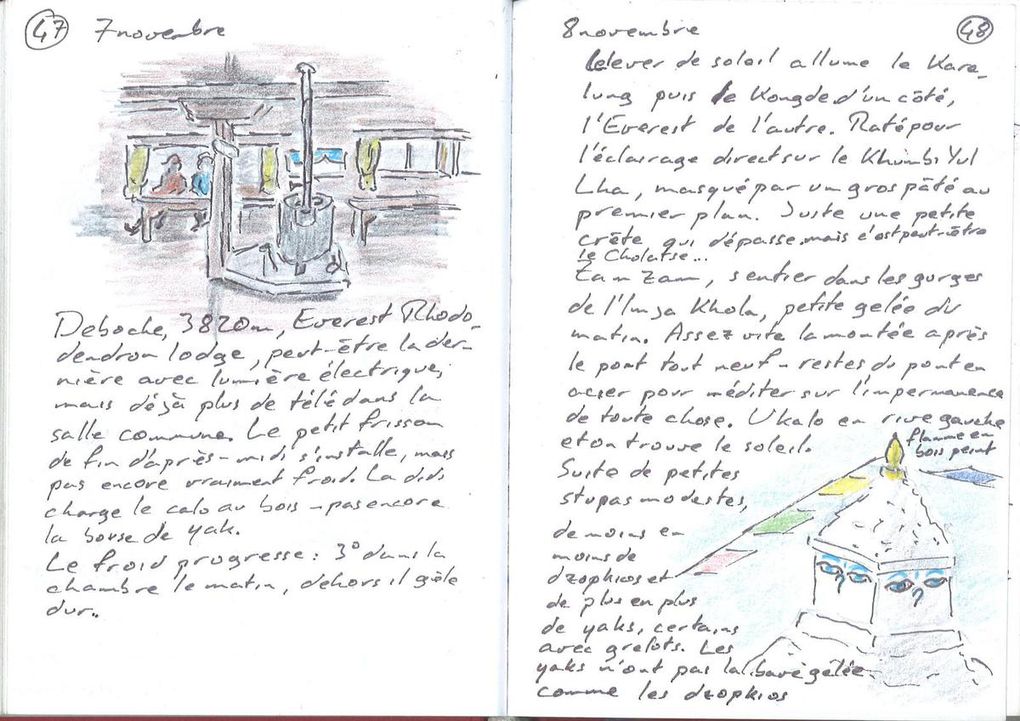 47
7 novembre
Deboche, 3820m, Everest Rhodo-
dendron lodge, peut-être la der-
nière avec lumière électrique,
mais déjà plus de télé dans la
salle commune. Le petit frisson
de fin d'après-midi s'installe, mais
pas encore vraiment froid. La didi
charge le calo au bois - pas encore
la bouse de yak.
Le froid progresse : 3° dans la
chambre le matin, dehors il gèle
dur..
8 novembre
48
Lelever de soleil allume le Kare-
lung puis le Kongde d'un côté,
l'Everest de l'autre. Raté pour
l'éclairage direct sur le Khumbi Yul
Lha, masqué par un gros pâté au
premier plan. Juste une petite
crête qui dépasse mais c'est peut-être
le Cholatse...
Zam Zam, sentier dans les gorges
de l'Imja Khola, petite gelée du
matin. Assez vite la montée après
le pont tout neuf - restes du pont en
acier pour méditer sur l'impermanence
de toute chose. Ukalo en rive gauche
et on trouve le soleil.
flamme en
bois peint
Suite de petites
stupas modestes,
de moins en
moins de
dzopkios et
de plus en plus
de yaks, certains
avec grelots. Les
yaks n'ont pas la bave gelée
comme les dzopkios